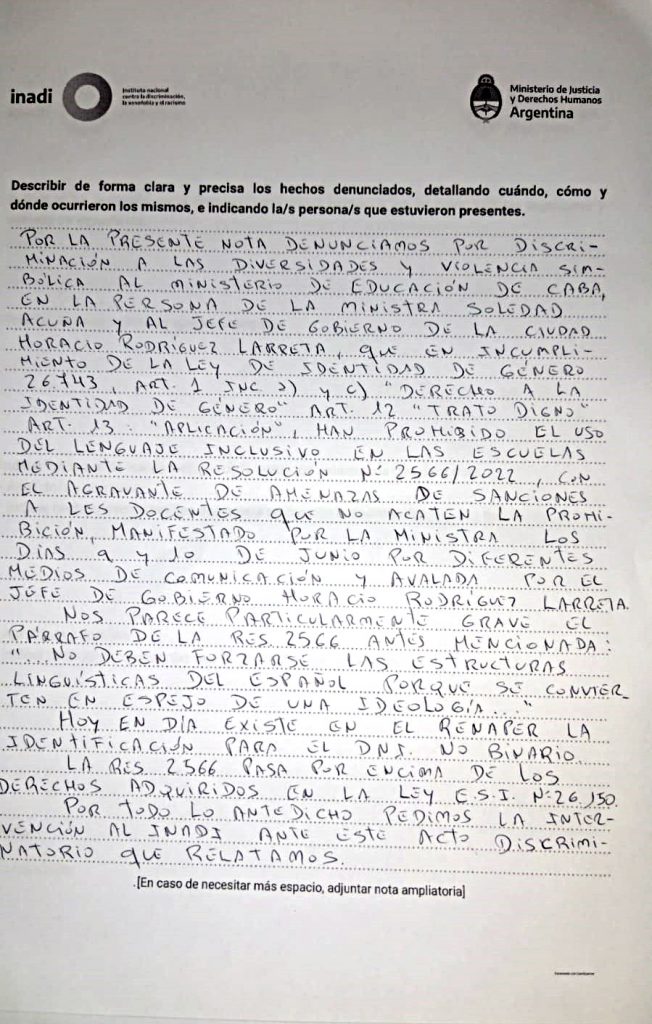 inadi
Instituto nacional
contra la discriminación,
la xenofobia y el racismo
Ministerio de Justicia
y Derechos Humanos
Argentina
Describir de forma clara y precisa los hechos denunciados, detallando cuándo, cómo y
dónde ocurrieron los mismos, e indicando la/s persona/s que estuvieron presentes.
POR LA PRESENTE NOTA DENUNCIAMOS POR DISCRI-
MINACIÓN A LAS DIVERSIDADES Y VIOLENCIA SIM-
BÓLICA AL MINISTERIO DE EDUCACIÓN DE CABA,
EN LA PERSONA DE LA MINISTRA SOLEDAD
ACUÑA Y AL JEFE DE GOBIERNO DE LA CIUDAD
HORACIO RODRÍGUEZ LARRETA, QUE EN INCUMPLI-
MIENTO DE LA LEY DE IDENTIDAD DE GÉNERO
26743, ART. 1 INC a) y c) "DERECHO A LA
IDENTIDAD DE GÉNERO" ART. 12 "TRATO DIGNO"
ART. 13: "APLICACIÓN", HAN PROHIBIDO EL USO
DEL LENGUAJE INCLUSIVO EN LAS ESCUELAS
MEDIANTE LA RESOLUCIÓN Nº 2566/2022, CON
EL AGRAVANTE DE AMENAZAS DE SANCIONES
A LES DOCENTES QUE NO ACATEN LA PROHI-
BICIÓN, MANIFESTADO POR LA MINISTRA LOS
DÍAS 9 y 10 DE JUNIO POR DIFERENTES
MEDIOS DE COMUNICACIÓN Y AVALADA POR EL
JEFE DE GOBIERNO HORACIO RODRÍGUEZ LARRETA.
NOS PARECE PARTICULARMENTE GRAVE EL
PÁRRAFO DE LA RES. 2566 ANTES MENCIONADA:
"...NO DEBEN FORZARSE LAS ESTRUCTURAS
LINGUÍSTICAS DEL ESPAÑOL PORQUE SE CONVIER-
TEN EN ESPEJO DE UNA IDEOLOGÍA..."
HOY EN DÍA EXISTE EN EL RENAPER LA
IDENTIFICACIÓN PARA EL DNI. NO BINARIO.
LA RES 2566 PASA POR ENCIMA DE LOS
DERECHOS ADQUIRIDOS EN LA LEY E.S.I. Nº 26.150.
POR TODO LO ANTEDICHO PEDIMOS LA INTER-
VENCIÓN AL INADI ANTE ESTE ACTO DISCRIMI-
NATORIO QUE RELATAMOS.
.[En caso de necesitar más espacio, adjuntar nota ampliatoria]